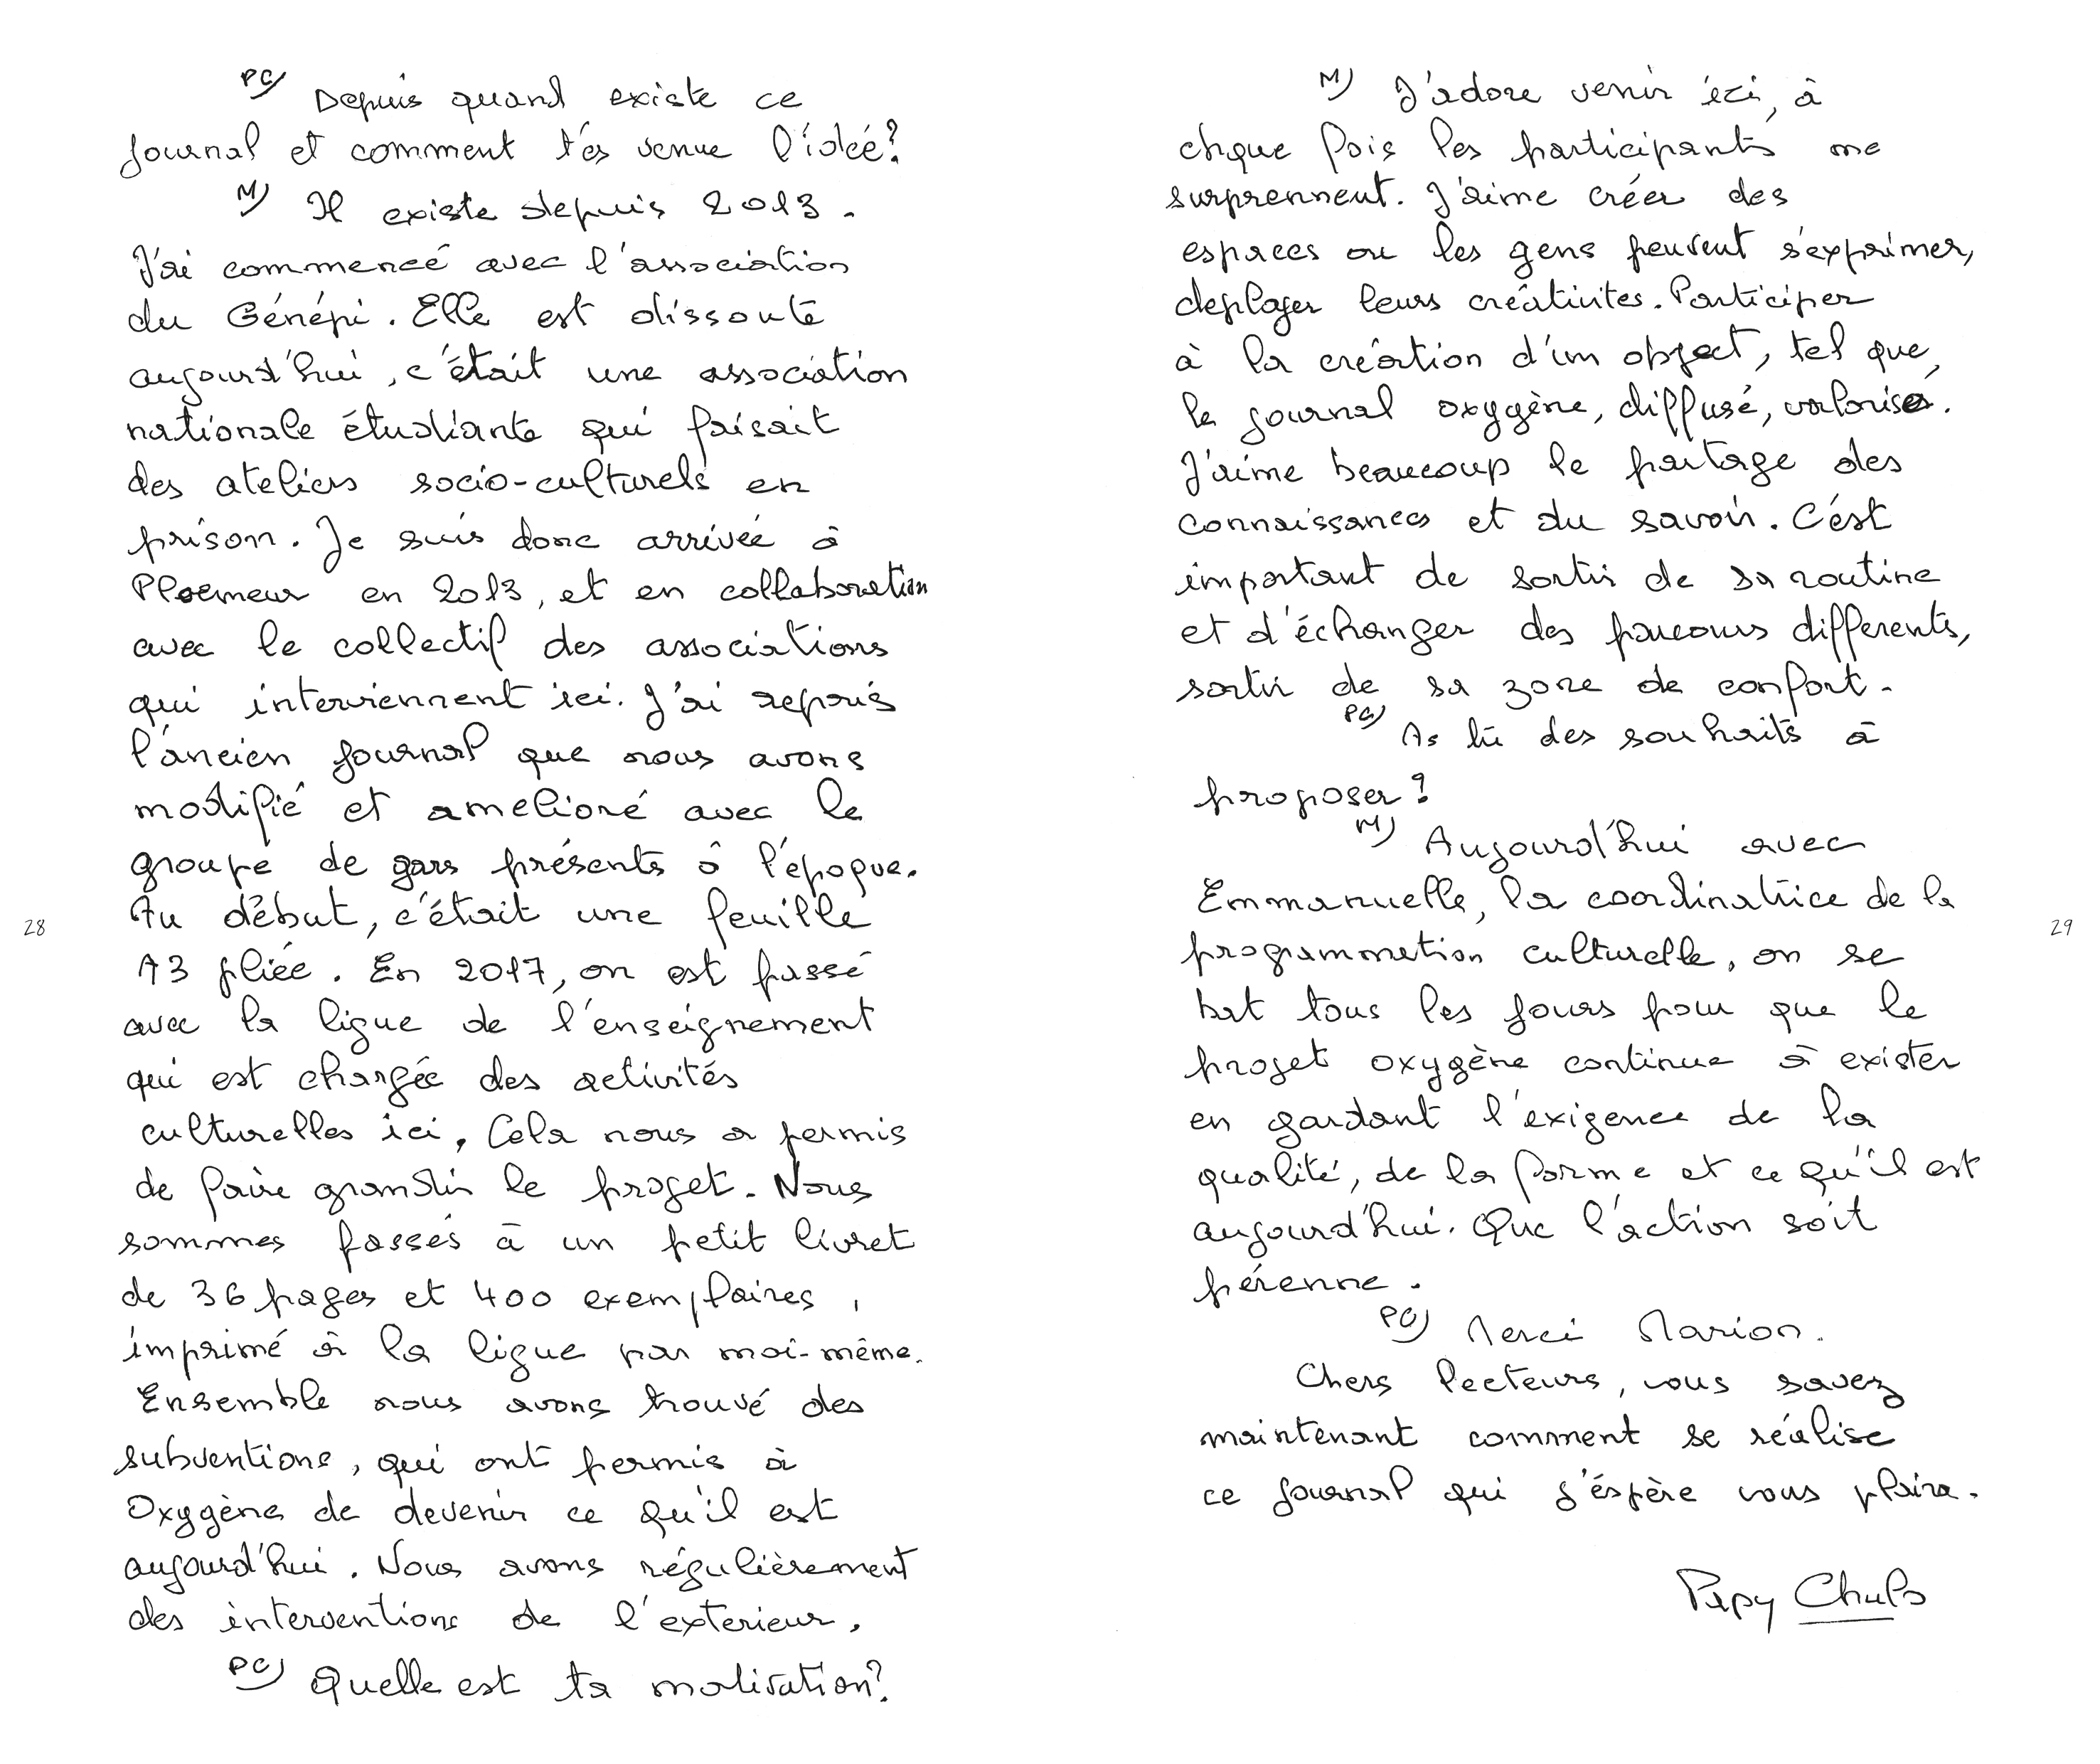 PC) Depuis quand existe ce
journal et comment t'es venue l'idée?
M) Il existe depuis 2013.
J'ai commencé avec l'association
du Génépi. Elle est dissoute
aujourd'hui, c'était une association
nationale étudiante qui faisait
des ateliers socio-culturels en
prison. Je suis donc arrivée à
Ploemeur en 2013, et en collaboration
avec le collectif des associations
qui interviennent ici. J'ai repris
l'ancien journal que nous avons
modifié et amelioré avec le
groupe de gars présents à l'époque.
Au début, c'était une feuille
A3 pliée. En 2017, on est passé
avec la ligue de l'enseignement
qui est chargée des activités
culturelles ici, Cela nous a permis
de faire grandir le projet. Nous
sommes passés à un petit livret
de 36 pages et 400 exemplaires,
imprimé à la ligue par moi-même.
Ensemble nous avons trouvé des
subventions, qui ont permis à
Oxygène de devenir ce qu'il est
aujourd'hui. Nous avons régulièrement
des interventions de l'exterieur.
PC) Quelle est ta motivation?
28
M) J'adore venir ici, à
chque fois les participants me
surprennent. J'aime créer des
espaces ou les gens peuvent s'exprimer,
deployer leurs créativites. Participer
à la création d'un object, tel que,
le journal oxygène, diffusé, valorisé.
J'aime beaucoup le partage des
connaissances et du savoir. C'est
important de sortir de sa routine
et d'échanger des parcours differents,
sortir de sa zone de confort.
PC) As tu des souhaits à
proposer?
M) Aujourd'hui avec
Emmanuelle, la coordinatrice de la
programmation culturelle, on se
bat tous les jours pour que le
projet oxygène continue à exister
en gardant l'exigence de la
qualité, de la forme et ce qu'il est
aujourd'hui. Que l'action soit
pérenne.
PC) Merci Marion.
Chers lecteurs, vous savez
maintenant comment se réalise
ce journal qui j'éspère vous plaira.
Papy Chulo
29